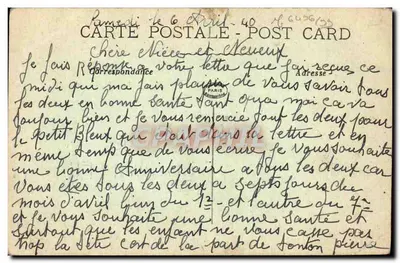 Samedi le 6 Avril 40
CARTE POSTALE - POST CARD
Chère Nièce et Neveux
Je fais réponse a votre lettre que j'ai reçue ce
Correspondance Adresse
midi qui ma fais plaisir de vous savoir tous
PARIS
les deux en bonne santé tant qua moi ca va
toujour bien et je vous remercie tout les deux pour
le petit Bleux qui était dans de lettre et en
même temps que de vous ecrire je vous souhaite
une bonne Anniversaire a tous les deux car
vous etes tous les deux a septs jours du
mois d'avril l'un du 1er et l'autre du 7
et je vous souhaite une bonne santé et
surtout que les enfant ne vous casse pas
trop la tête de la part de tonton pierre